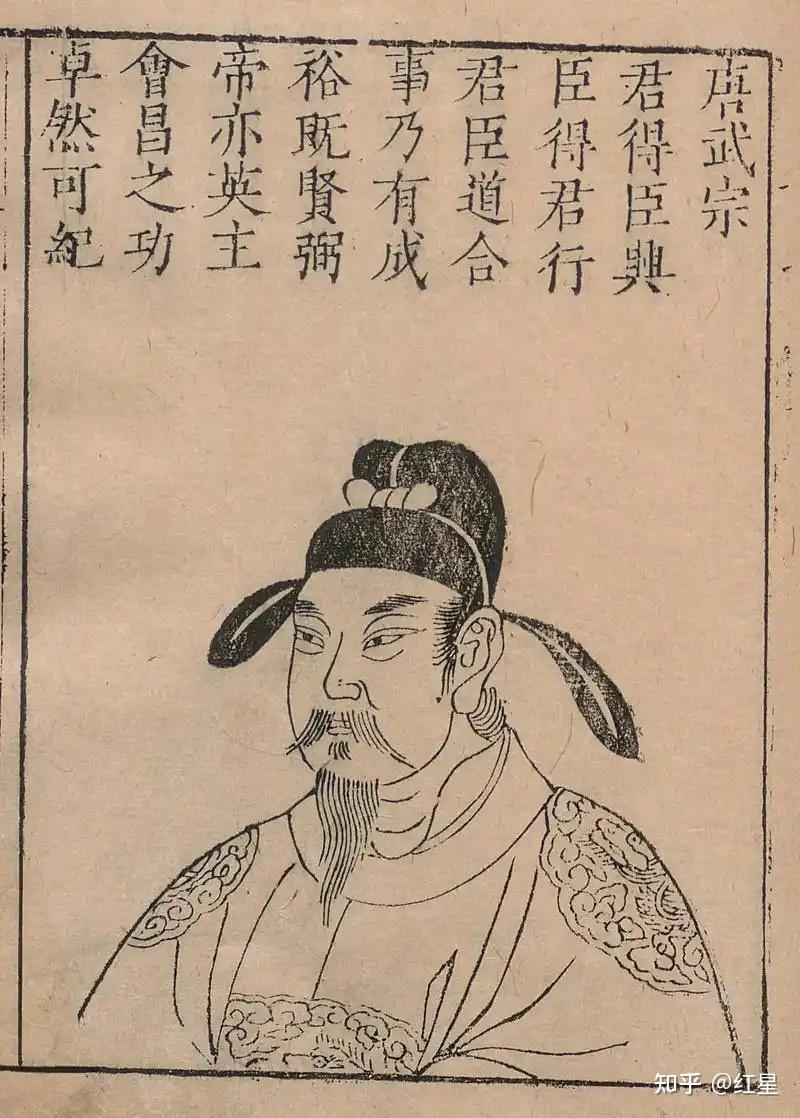 唐武宗
君得臣興
臣得君行
君臣道合
事乃有成
裕既賢弼
帝亦英主
會昌之功
卓然可紀
知乎 @红星